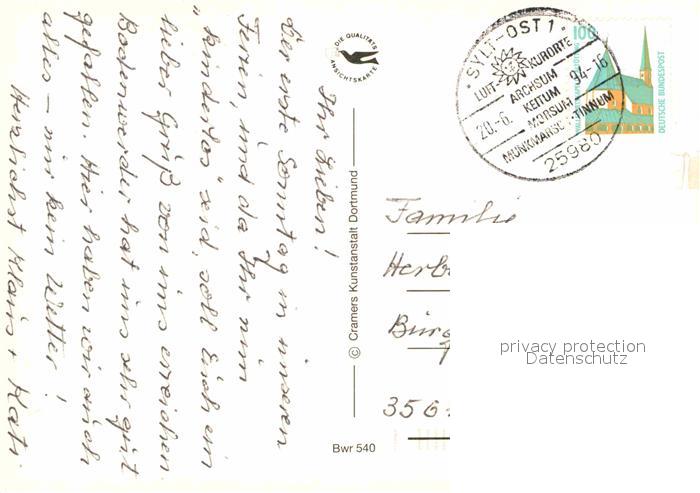 Ihr Lieben!
Der erste Sonntag in unseren
Ferien, und da Ihr nun
"kinderlos" seid, soll Euch ein
lieber Gruß von uns erreichen.
Bodenwerder hat uns sehr gut
gefallen. Hier haben wir auch
alles – nur kein Wetter!
Herzlichst Klaus + Kati.
DIE QUALITÄTS
ANSICHTSKARTE
© Cramers Kunstanstalt Dortmund
Bwr 540
SYLT-OST 1
LUFT-KURORTE
ARCHSUM
KEITUM
MORSUM
MUNKMARSCH-TINNUM
20.-6. 94-16
25980
100
DEUTSCHE BUNDESPOST
Familie
Herb
Bürg
356
privacy protection
Datenschutz